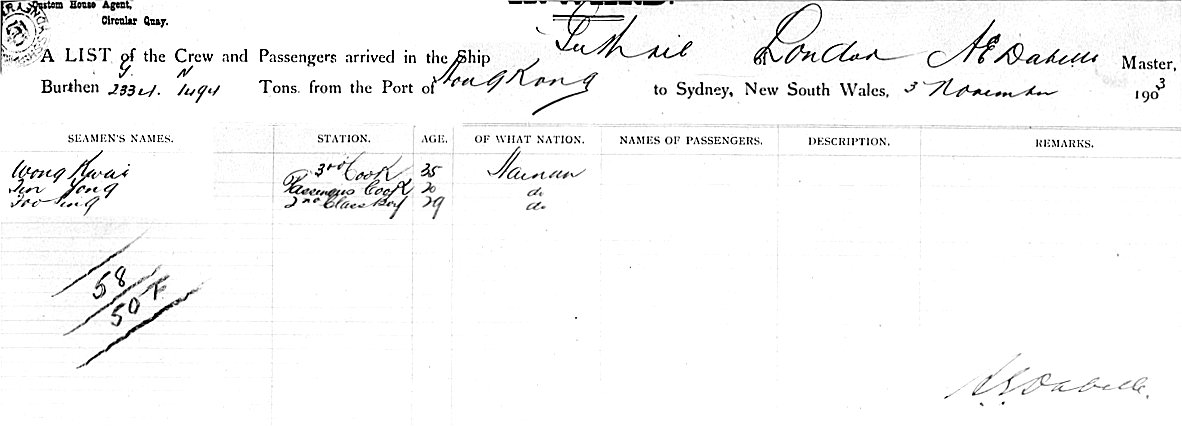 Custom House Agent,
Circular Quay.
A LIST of the Crew and Passengers arrived in the Ship Guthrie London A E Dabelle Master,
Burthen 2334. Tons. from the Port of Hong Kong to Sydney, New South Wales, 3 November 1903
SEAMEN'S NAMES. STATION. AGE. OF WHAT NATION. NAMES OF PASSENGERS. DESCRIPTION. REMARKS.
Wong Kwai 3rd Cook 35 Hainan
Tong Cook 20 do
2nd Class Boy 29 do
58
50
Dabelle.